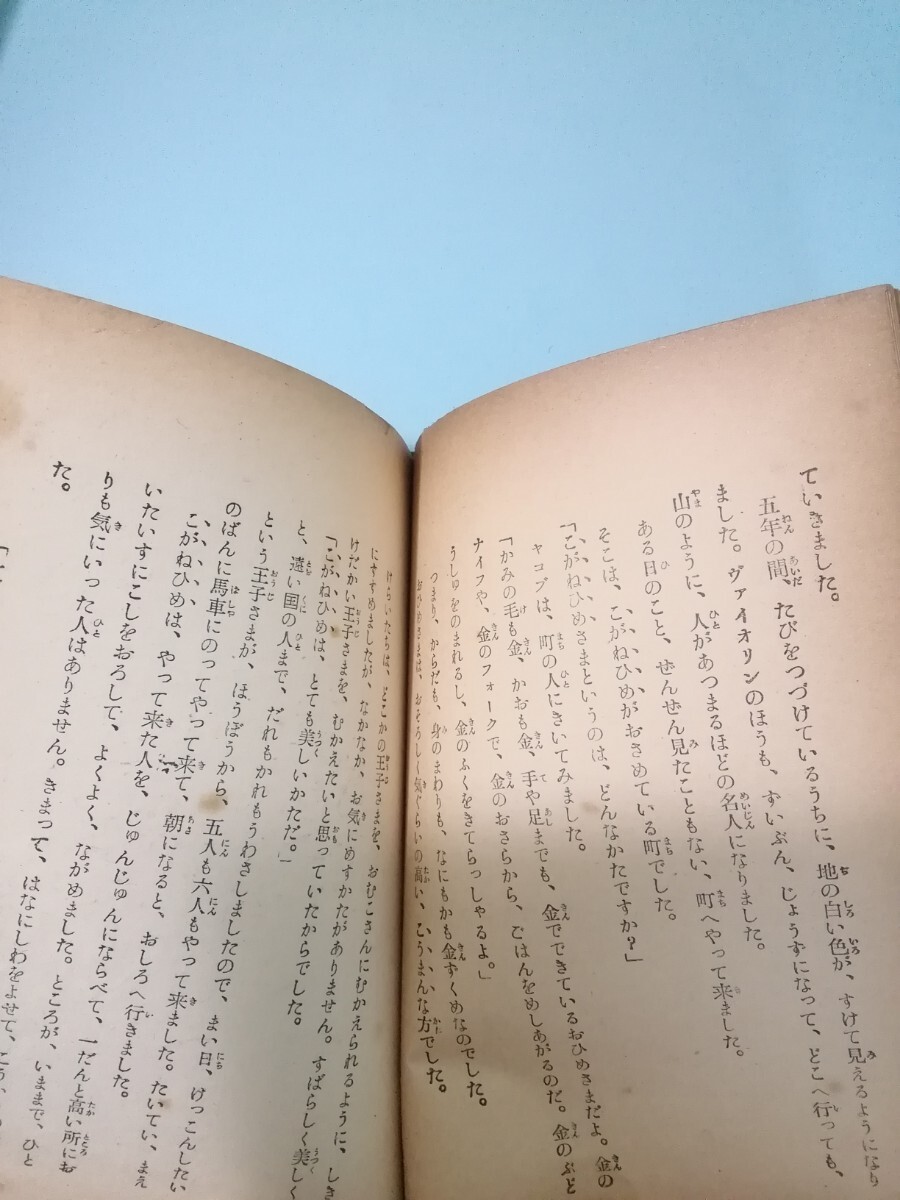 ていきました。
五年の間、たびをつづけているうちに、地の白い色が、すけて見えるようになり
ました。ヴァイオリンのほうも、ずいぶん、じょうずになって、どこへ行っても、
山のように、人があつまるほどの名人になりました。
ある日のこと、ぜんぜん見たこともない、町へやって来ました。
そこは、こがねひめがおさめている町でした。
「こがねひめさまというのは、どんなかたですか？」
ヤコブは、町の人にきいてみました。
「かみの毛も金、かおも金、手や足までも、金でできているおひめさまだよ。金の
ナイフや、金のフォークで、金のおさらから、ごはんをめしあがるのだ。金のぶど
うしゅをのまれるし、金のふくをきてらっしゃるよ。」
つまり、からだも、身のまわりも、なにもかも金ずくめなのでした。
おひめさまは、おそろしく気ぐらいの高い、こうまんな方でした。
けらいたちは、どこかの王子さまを、おむこさんにむかえられるように、しき
にすすめましたが、なかなか、お気にめすかたがありません。すばらしく美しく
けだかい王子さまを、むかえたいと思っていたからでした。
「こがねひめは、とても美しいかただ。」
と、遠い国の人まで、だれもかれもうわさしましたので、まい日、けっこんしたい
という王子さまが、ほうぼうから、五人も六人もやって来ました。たいてい、まえ
のばんに馬車にのってやって来て、朝になると、おしろへ行きました。
こがねひめは、やって来た人を、じゅんじゅんにならべて、一だんと高い所にお
いたいすにこしをおろして、よくよく、ながめました。ところが、いままで、ひと
りも気にいった人はありません。きまって、はなにしわをよせて、こう、
た。